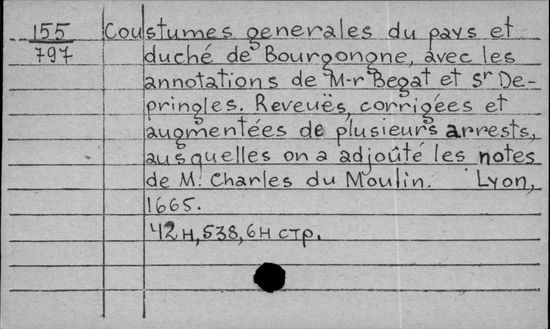 155 Coustumes generales du pays et
797 duché de Bourgongne, avec les
annotations de M-r Begat et Sr De-
pringles. Reveuës, corrigées et
augmentées de plusieurs arrests,
ausquelles on a adjoûté les notes
de M. Charles du Moulin. Lyon,
1665.
42н, 538, 6н стр.